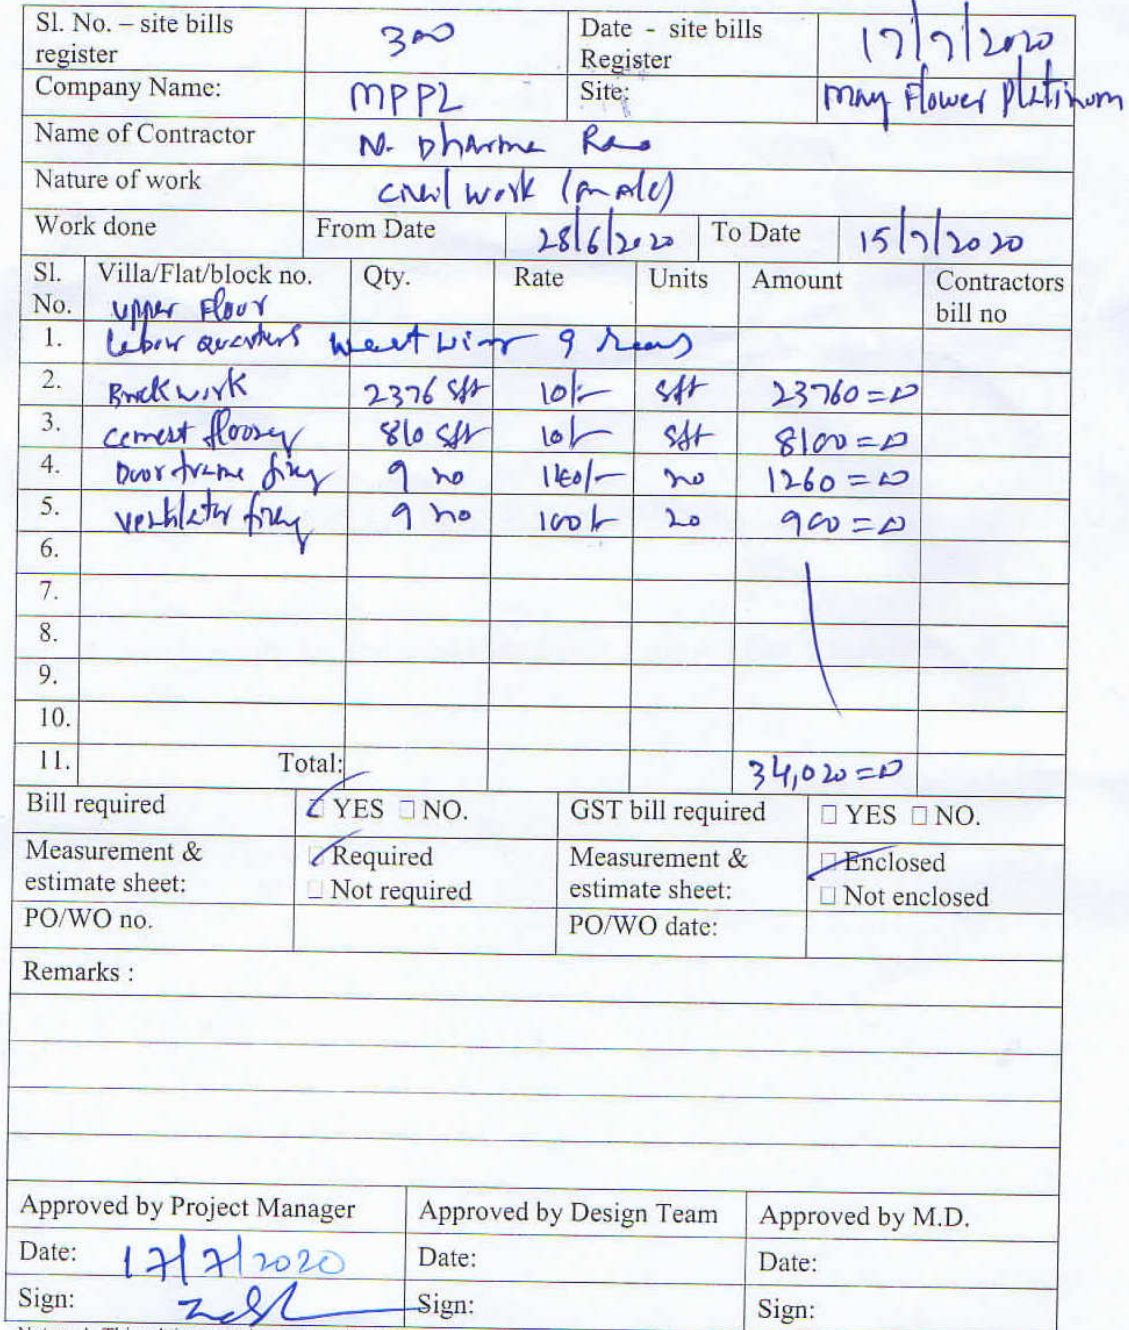 Sl. No. – site bills register 300 Date - site bills Register 17/7/2020
Company Name: MPPL Site: may Flower Platinum
Name of Contractor N. Dharma Rao
Nature of work civil work (male)
Work done From Date 28/6/2020 To Date 15/7/2020
Sl. No. Villa/Flat/block no. Qty. Rate Units Amount Contractors bill no
upper Floor
1. Labour quarters west wing 9
2. Brick work 2376 sft 10/- sft 23760=00
3. cement 810 sft 10/- sft 8100=00
4. Door frame 9 no 140/- no 1260=00
5. 9 no 100/- no 900=00
6.
7.
8.
9.
10.
11. Total: 34,020=00
Bill required YES NO. GST bill required YES NO.
Measurement & estimate sheet: Required Measurement & estimate sheet: Enclosed
Not required Not enclosed
PO/WO no. PO/WO date:
Remarks :
Approved by Project Manager Approved by Design Team Approved by M.D.
Date: 17/7/2020 Date: Date:
Sign: Sign: Sign: